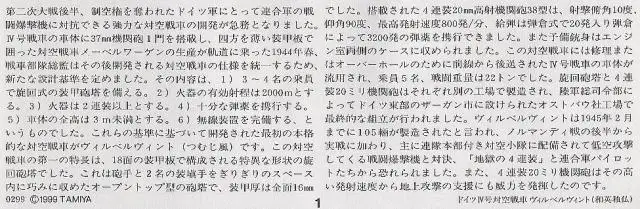 第二次大戦後半、制空権を奪われたドイツ軍にとって連合軍の戦
闘爆撃機に対抗できる強力な対空戦車の開発が急務となりました。
IV号戦車の車体に37mm機関砲1門を搭載し、四方を薄い装甲板で
囲った対空戦車メーベルワーゲンの生産が軌道に乗った1944年春、
戦車部隊総監はその後開発される対空戦車の仕様を統一するため、
新たな設計基準を定めました。その内容は、1）3〜4名の乗員
で旋回式の装甲砲塔を備える。2）火器の有効射程は2000mとす
る。3）火器は2連装以上とする。4）十分な弾薬を携行する。
5）車体の全高は3m未満とする。6）無線装置を完備する、と
いうものでした。これらの基準に基づいて開発された最初の本格
的な対空戦車がヴィルベルヴィント（つむじ風）です。この対空
戦車の第一の特長は、18面の装甲板で構成される特異な形状の旋
回砲塔でした。これは砲手と2名の装填手をぎりぎりのスペース
内に巧みに収めたオープントップ型の砲塔で、装甲厚は全面16mm
でした。搭載された4連装20mm高射機関砲38型は、射撃俯角10度、
仰角90度、最高発射速度800発/分、給弾は弾倉式で20発入り弾倉
によって3200発の弾薬を携行できました。また予備銃身はエンジ
ン室両側のケースに収められました。この対空戦車には修理また
はオーバーホールのために前線から後送されたIV号戦車の車体が
流用され、乗員5名、戦闘重量は22トンでした。旋回砲塔と4連
装20ミリ機関砲はそれぞれ別の工場で製造され、陸軍総司令部に
よってドイツ東部のザーガン市に設けられたオストバウ社工場で
最終的な組立が行われました。ヴィルベルヴィントは1945年2月
までに105輌が製造されたと言われ、ノルマンディ戦の後半から
実戦に加わり、主に連隊本部付き対空小隊に配備されて低空攻撃
してくる戦闘爆撃機と対決、「地獄の4連装」と連合軍パイロッ
トたちから恐れられました。また、4連装20ミリ機関砲はその高
い発射速度から地上攻撃の支援にも威力を発揮したのです。
0299 ©1999 TAMIYA
1
ドイツIV号対空戦車 ヴィルベルヴィント（和英独仏）